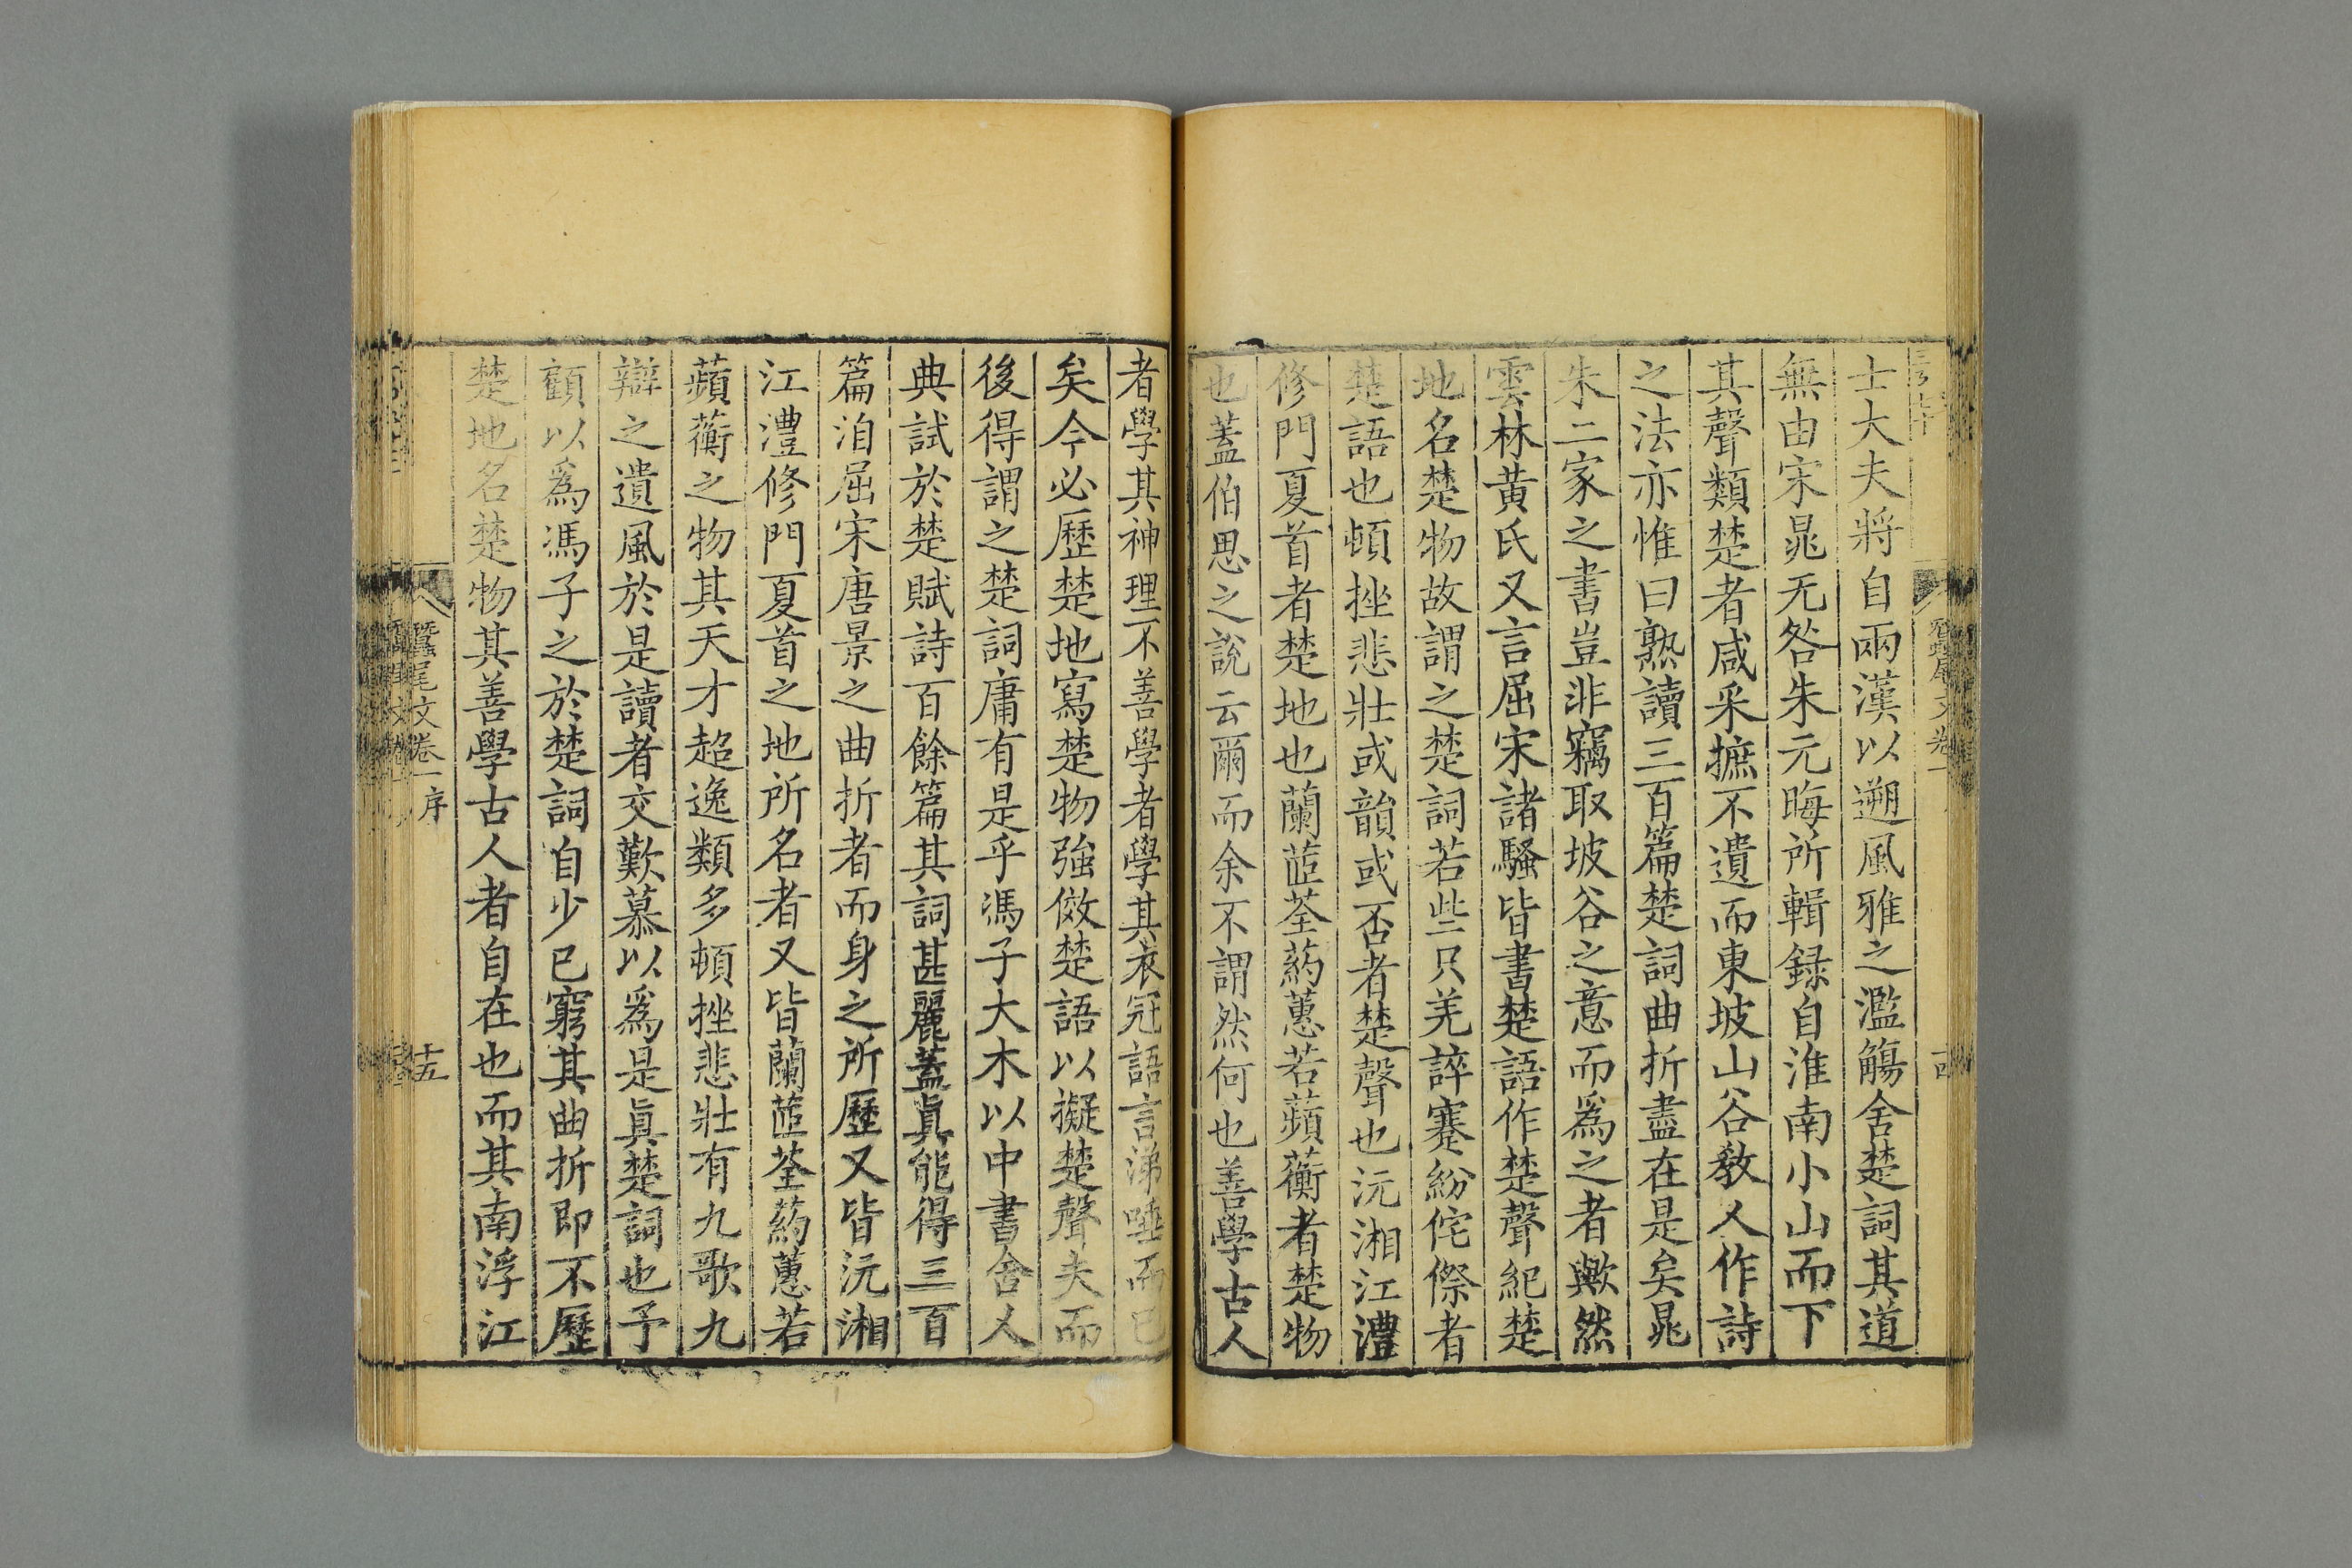 士大夫將自兩漢以遡風雅之濫觴舍楚詞其道
無由宋晁无咎朱元晦所輯録自淮南小山而下
其聲類楚者咸采摭不遺而東坡山谷敎人作詩
之法亦惟曰熟讀三百篇楚詞曲折盡在是矣晁
朱二家之書豈非竊取坡谷之意而爲之者歟然
雲林黃氏又言屈宋諸騷皆書楚語作楚聲紀楚
地名楚物故謂之楚詞若些只羌誶蹇紛侘傺者
楚語也頓挫悲壯或韻或否者楚聲也沅湘江澧
修門夏首者楚地也蘭茝荃葯蕙若蘋蘅者楚物
也蓋伯思之說云爾而余不謂然何也善學古人
者學其神理不善學者學其衣冠語言涕唾而已
矣今必歷楚地寫楚物強傚楚語以擬楚聲夫而
後得謂之楚詞庸有是乎馮子大木以中書舍人
典試於楚賦詩百餘篇其詞甚麗蓋眞能得三百
篇洎屈宋唐景之曲折者而身之所歷又皆沅湘
江澧修門夏首之地所名者又皆蘭茝荃葯蕙若
蘋蘅之物其天才超逸類多頓挫悲壯有九歌九
辯之遺風於是讀者交歎慕以爲是眞楚詞也予
顧以爲馮子之於楚詞自少已窮其曲折即不歷
楚地名楚物其善學古人者自在也而其南浮江
蠶尾文卷一序
十五